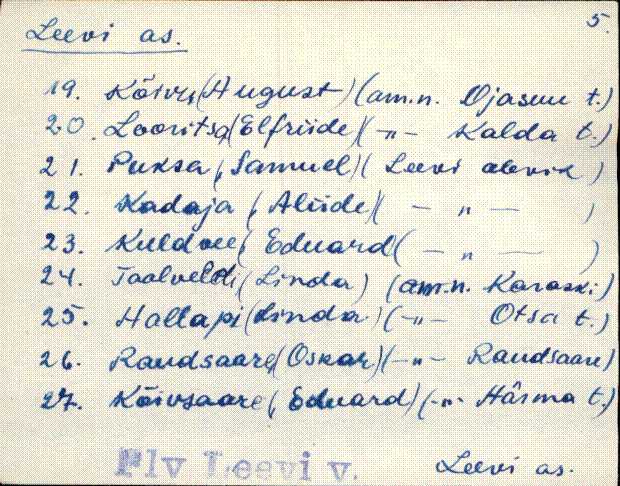 5.
Leevi as.
19. Kõivu (August) (am.n. Ojasuu t.)
20. Looritsa (Elfriide) (-„- Kalda t.)
21. Puksa (Samuel) (Leevi alevik)
22. Kadaja (Aliide) (- „ - )
23. Kuldvee (Eduard (- „ - )
24. Taalveldi (Linda) (am.n. Karaski)
25. Hallapi (Linda) (-„- Otsa t.)
26. Raudsaare (Oskar) (-„- Raudsaare)
27. Kõivsaare (Eduard) (-„- Härma t.)
Plv Leevi v. Leevi as.